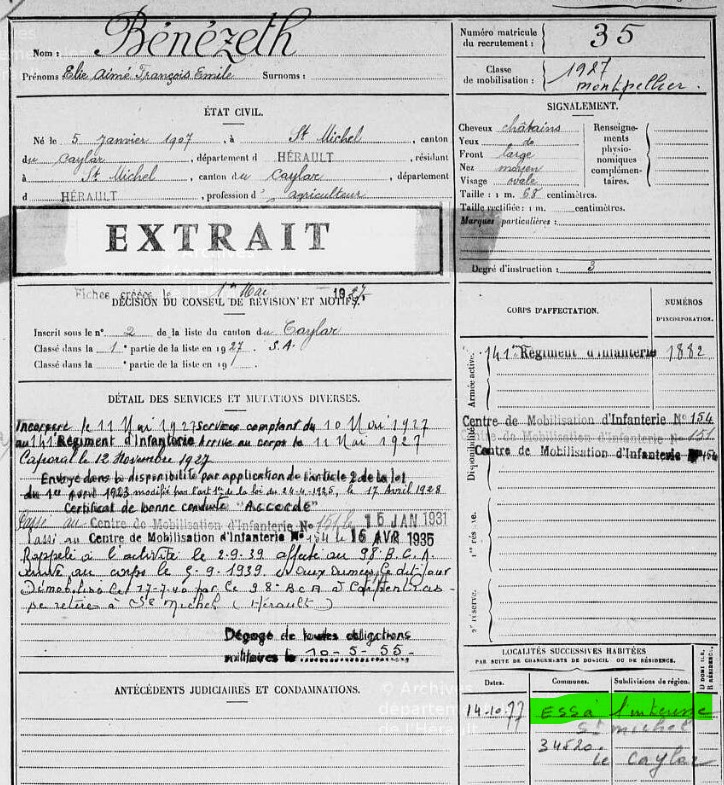 Nom : Bénézeth
Prénoms Elie Aimé François Emile Surnoms :
ÉTAT CIVIL.
Né le 5 Janvier 1907, à St Michel, canton
du Caylar, département d HÉRAULT, résidant
à St Michel, canton du Caylar, département
d HÉRAULT, profession d' agriculteur
EXTRAIT
Fiches créée le 1er Mai 1927.
DÉCISION DU CONSEIL DE RÉVISION ET MOTIFS.
Inscrit sous le n° 2 de la liste du canton du Caylar
Classé dans la 1e partie de la liste en 1927. S.A.
Classé dans la e partie de la liste en 19
DÉTAIL DES SERVICES ET MUTATIONS DIVERSES.
Incorporé le 11 Mai 1927 services comptant du 10 Mai 1927
au 141e Régiment d'Infanterie Arrivé au corps le 11 Mai 1927
Caporal le 12 Novembre 1927
Envoyé dans la disponibilité par application de l'article 2 de la loi
du 1er Avril 1923 modifié par l'art 1er de la loi du 24-4-1926, le 17 Avril 1928
Certificat de bonne conduite "ACCORDÉ"
Passé au Centre de Mobilisation d'Infanterie No 151 le 15 JAN 1931
Passé au Centre de Mobilisation d'Infanterie No 154 le 16 AVR 1935
Rappelé à l'activité le 2-9-39 affecté au 98e B.C.A.
arrivé au corps le 5-9-1939. et aux Armées le dit jour
Démobilisé le 17-7-40 par le 98e BCA à Carpentras
se retire à St Michel (Hérault)
Dégagé de toutes obligations
militaires le 10-5-55-
ANTÉCÉDENTS JUDICIAIRES ET CONDAMNATIONS.
Numéro matricule
du recrutement : 35
Classe
de mobilisation : 1927
Montpellier.
SIGNALEMENT.
Cheveux châtains
Yeux de
Front large
Nez moyen
Visage ovale
Renseignements physionomiques complémentaires.
Taille : 1 m. 68 centimètres.
Taille rectifiée : 1 m. centimètres.
Marques particulières :
Degré d'instruction : 3
CORPS D'AFFECTATION.
NUMÉROS
D'INCORPORATION.
Armée active.
141e Régiment d'Infanterie 1882
Disponibilité
Centre de Mobilisation d'Infanterie No 154
Centre de Mobilisation d'Infanterie No 151
Centre de Mobilisation d'Infanterie No 154
1re réserve.
2e réserve.
LOCALITÉS SUCCESSIVES HABITÉES
PAR SUITE DE CHANGEMENTS DE DOMICILE OU DE RÉSIDENCE.
Dates. Communes. Subdivisions de région.
14.10.77 ESS à l'intéressé
St Michel
34520.
Le Caylar
© Archives
départementales
de l'Hérault